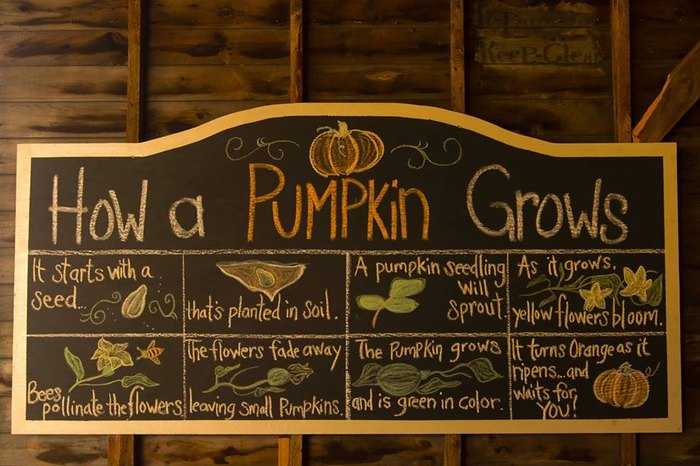 Keep Clean
How a Pumpkin Grows
It starts with a
seed...
that's planted in soil.
A pumpkin seedling
will
sprout.
As it grows,
yellow flowers bloom.
Bees
pollinate the flowers
The flowers fade away
leaving small Pumpkins.
The Pumpkin grows
and is green in color.
It turns Orange as it
ripens...and
waits for
YOU!